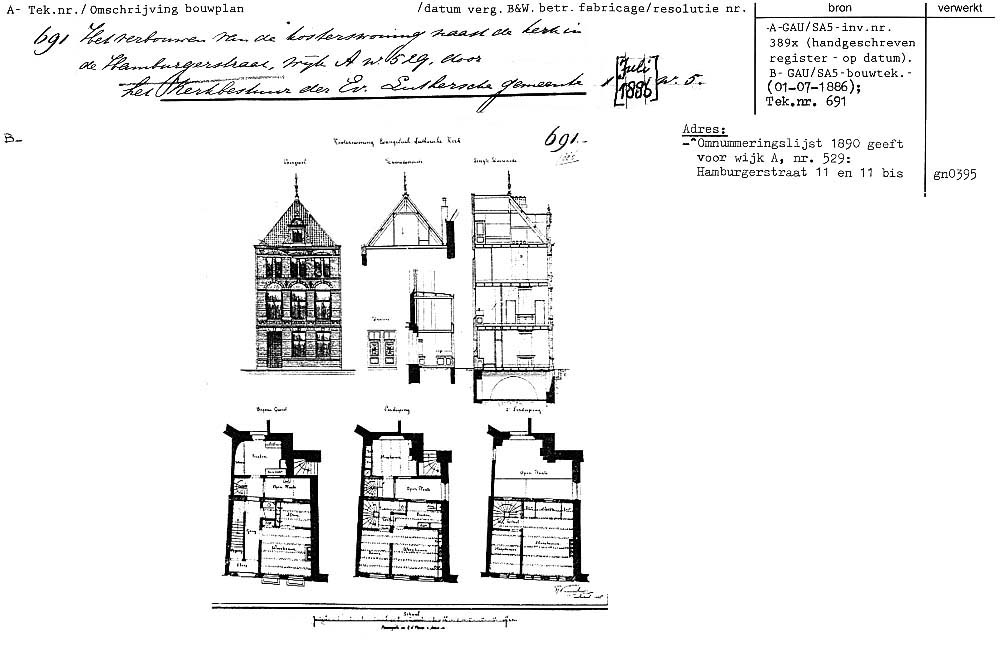 A- Tek.nr./Omschrijving bouwplan /datum verg. B&W. betr. fabricage/resolutie nr. bron verwerkt
691 Het verbouwen van de kosterswoning naast de kerk in
de Hamburgerstraat, wijk A no 529. door
het Kerkbestuur der Ev. Luthersche gemeente 1 [Juli 1886] no. 5.
-A-GAU/SA5-inv.nr.
389x (handgeschreven
register - op datum).
B- GAU/SA5-bouwtek.-
(01-07-1886);
Tek.nr. 691
B-
Kosterswoning Evangelisch Luthersche Kerk
691.-
Adres:
-^Omnummeringslijst 1890 geeft
voor wijk A, nr. 529:
Hamburgerstraat 11 en 11 bis
gn0395
Voorgevel
Begane Grond
1e Verdieping
2e Verdieping
Keuken
Open Plaats
Open Plaats
Open Plaats
Gang
Woonkamer
Schaal